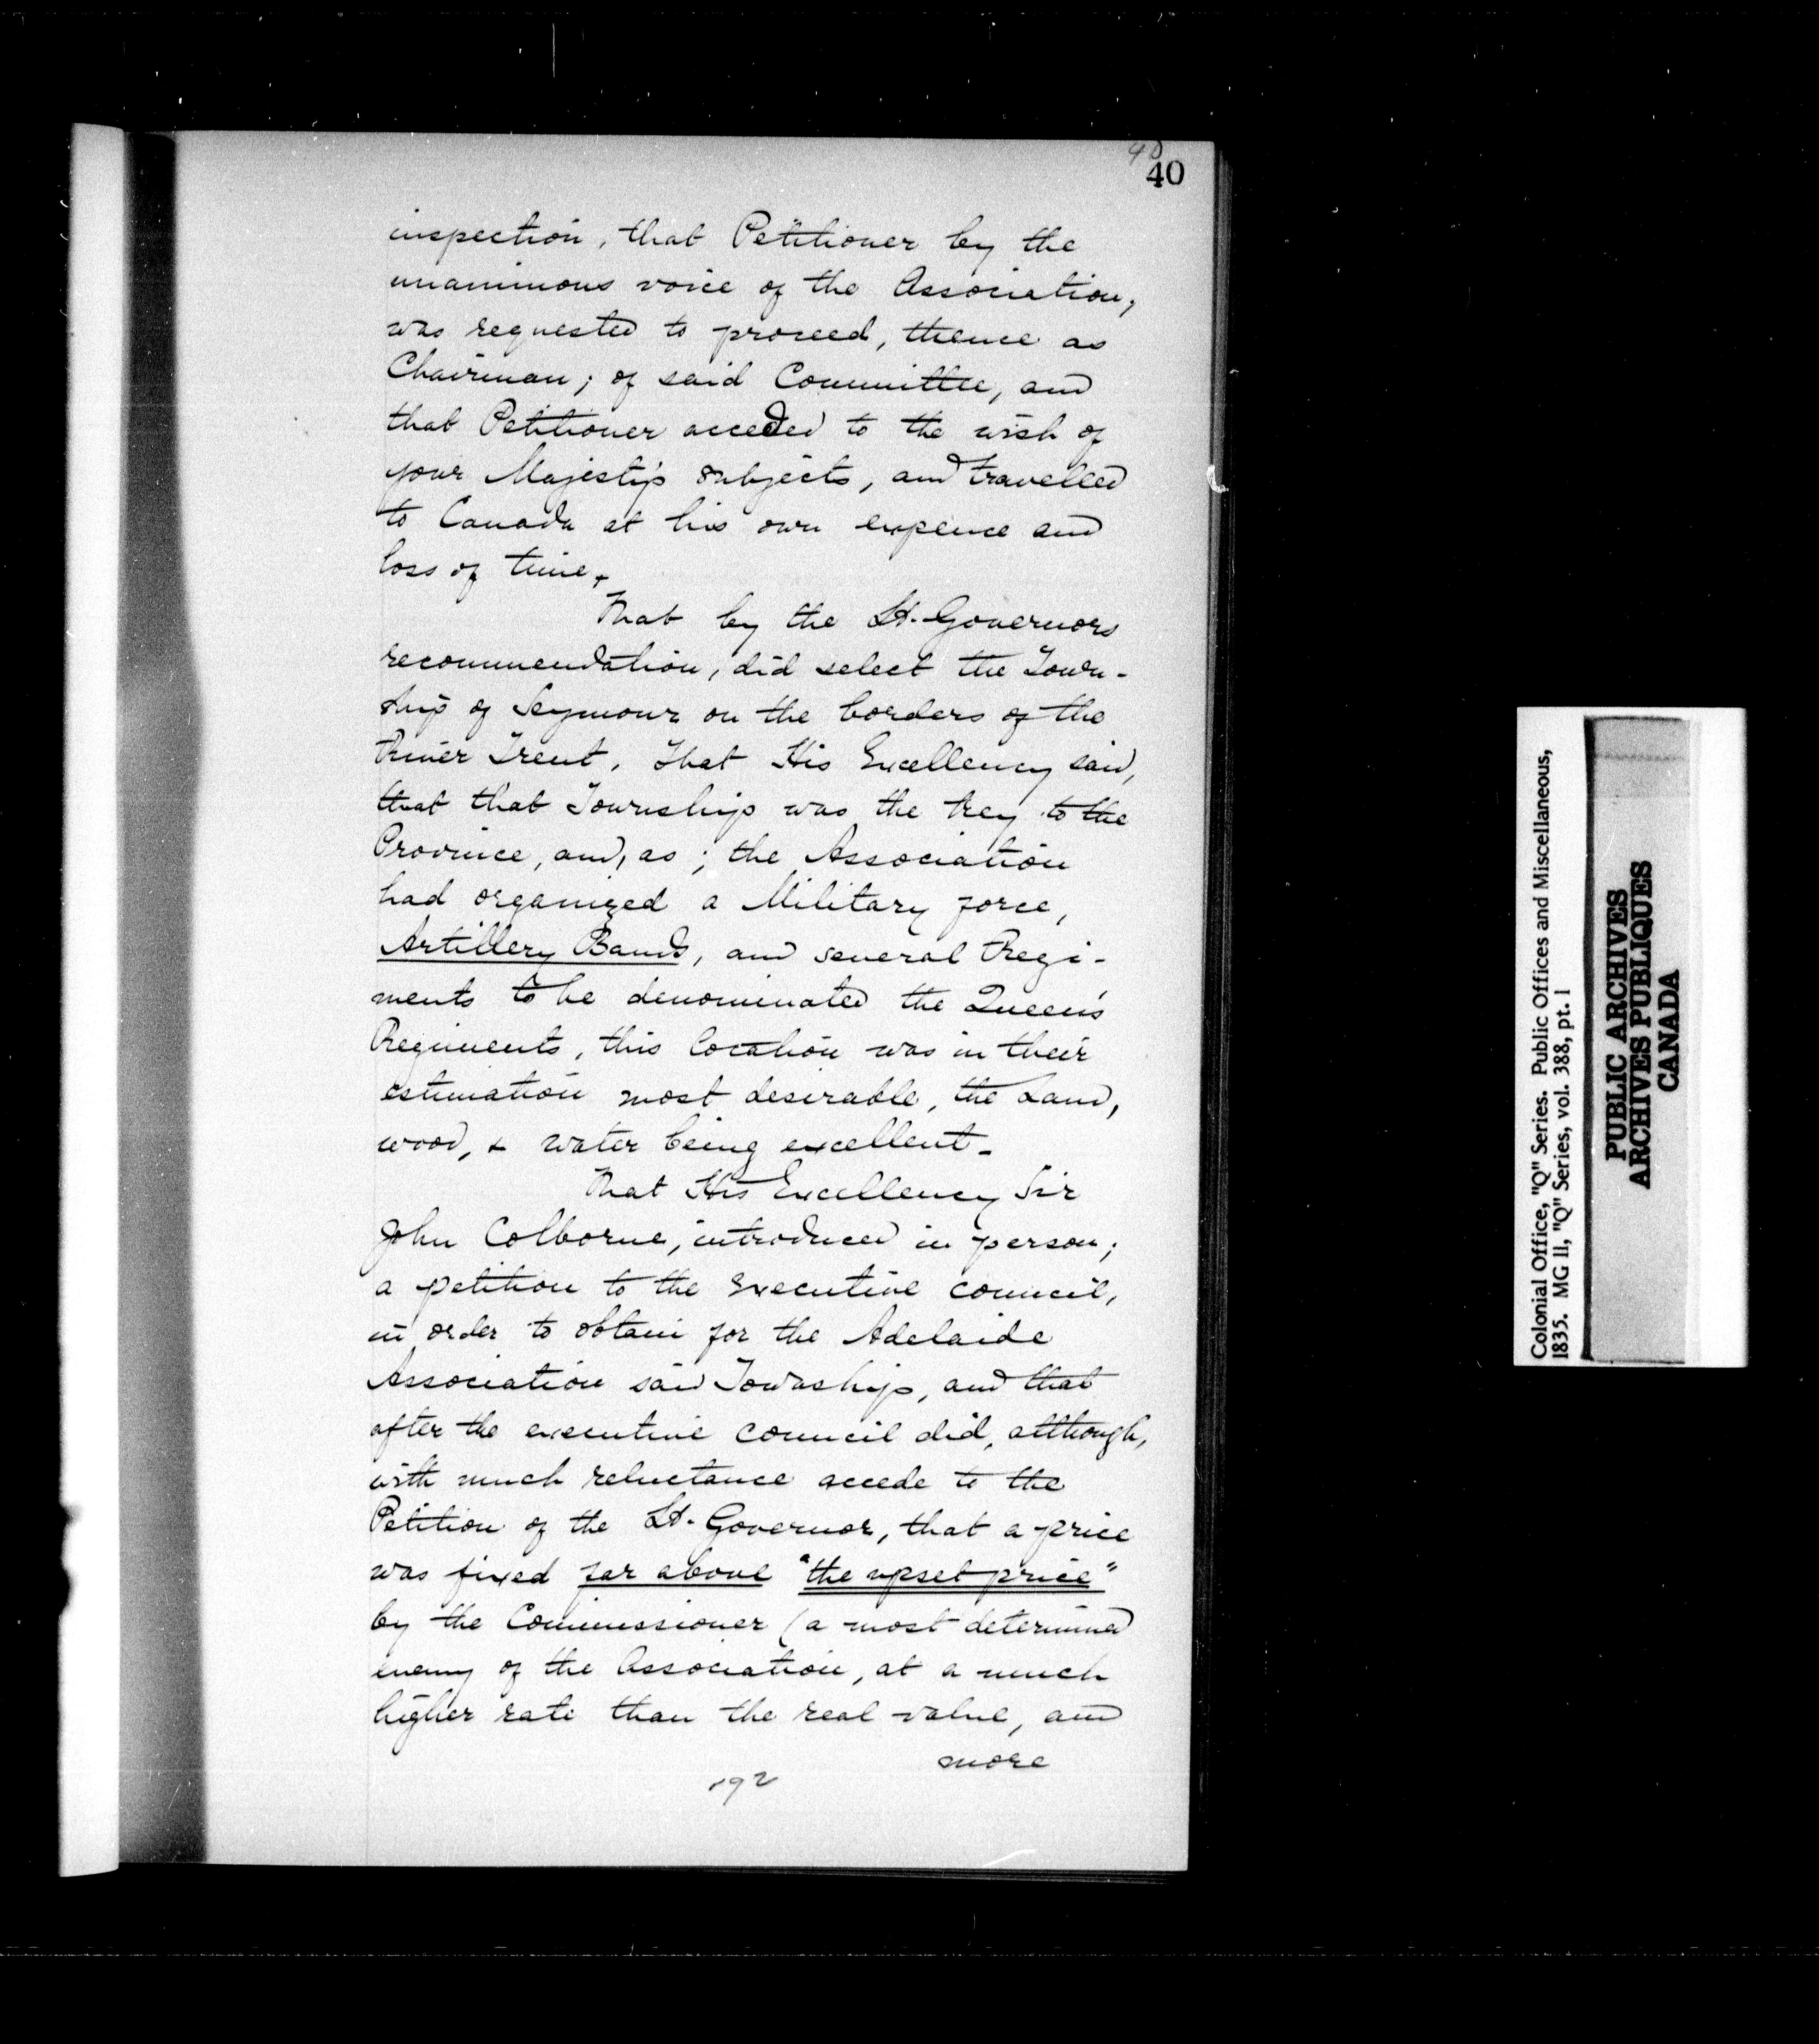 40
40
inspection, that Petitioner by the
unanimous voice of the Association,
was requested to proceed, thence as
Chairman; of said Committee, and
that Petitioner acceded to the wish of
your Majesty's subjects, and travelled
to Canada at his own expence and
loss of time.
That by the Lt. Governors
recommendation, did select the Town-
ship of Seymour on the borders of the
River Trent. That His Excellency said,
that that Township was the key to the
Province, and, as; the Association
had organized a Military force,
Artillery Bands, and several Regi-
ments to be denominated the Queen's
Regiments, this location was in their
estimation most desirable, the Land,
wood, & water being excellent.
That His Excellency Sir
John Colborne, introduced in person;
a petition to the Executive council,
in order to obtain for the Adelaide
Association said Township, and that
after the executive council did, although,
with much reluctance accede to the
Petition of the Lt. Governor, that a price
was fixed far above "the upset price"
by the Commissioner (a most determined
enemy of the Association, at a much
higher rate than the real value, and
more
192
Colonial Office, "Q" Series. Public Offices and Miscellaneous,
1835. MG 11, "Q" Series, vol. 388, pt. 1
PUBLIC ARCHIVES
ARCHIVES PUBLIQUES
CANADA